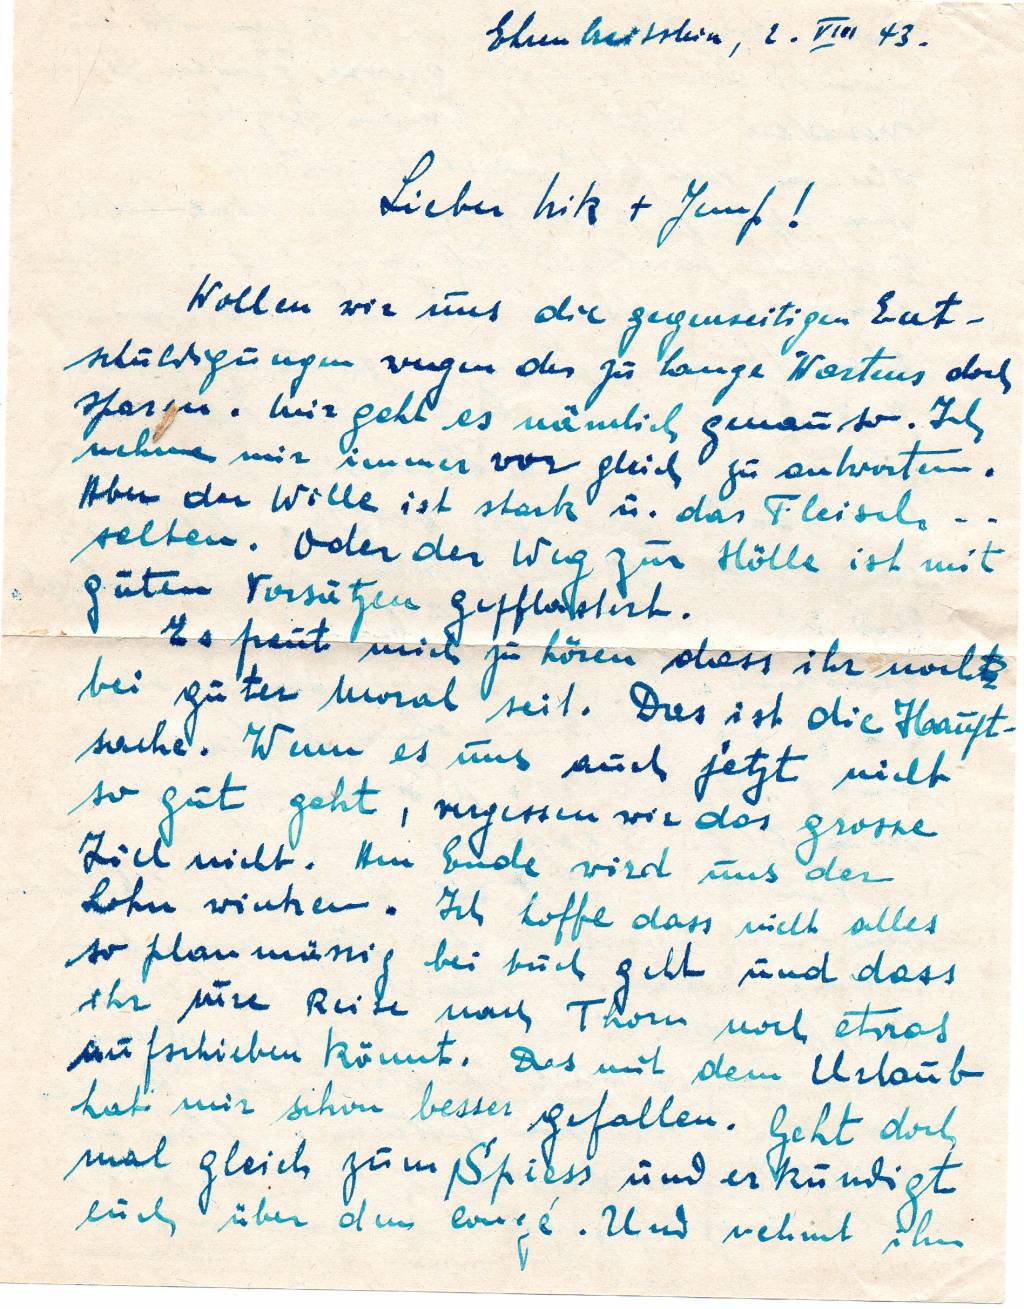 Ehrenbreitstein, 2. VIII 43.
Lieber Nik + Jemp!
Wollen wir uns die gegenseitigen Ent-
schuldigungen wegen des zu lange Wartens doch
sparen. Mir geht es nämlich genau so. Ich
nehme mir immer vor gleich zu antworten.
Aber der Wille ist stark u. das Fleisch --
selten. Oder der Weg zur Hölle ist mit
guten Vorsätzen gepflastert.
Es freut mich zu hören dass ihr noch
bei guter Moral seit. Das ist die Haupt-
sache. Wenn es uns auch jetzt nicht
so gut geht, vergessen wir das grosse
Ziel nicht. Am Ende wird uns der
Lohn winken. Ich hoffe dass nicht alles
so planmässig bei euch geht und dass
ihr eure Reise nach Thorn noch etwas
aufschieben könnt. Das mit dem Urlaub
hat mir schon besser gefallen. Geht doch
mal gleich zum Spiess und erkündigt
euch über den congé. Und nehmt ihn